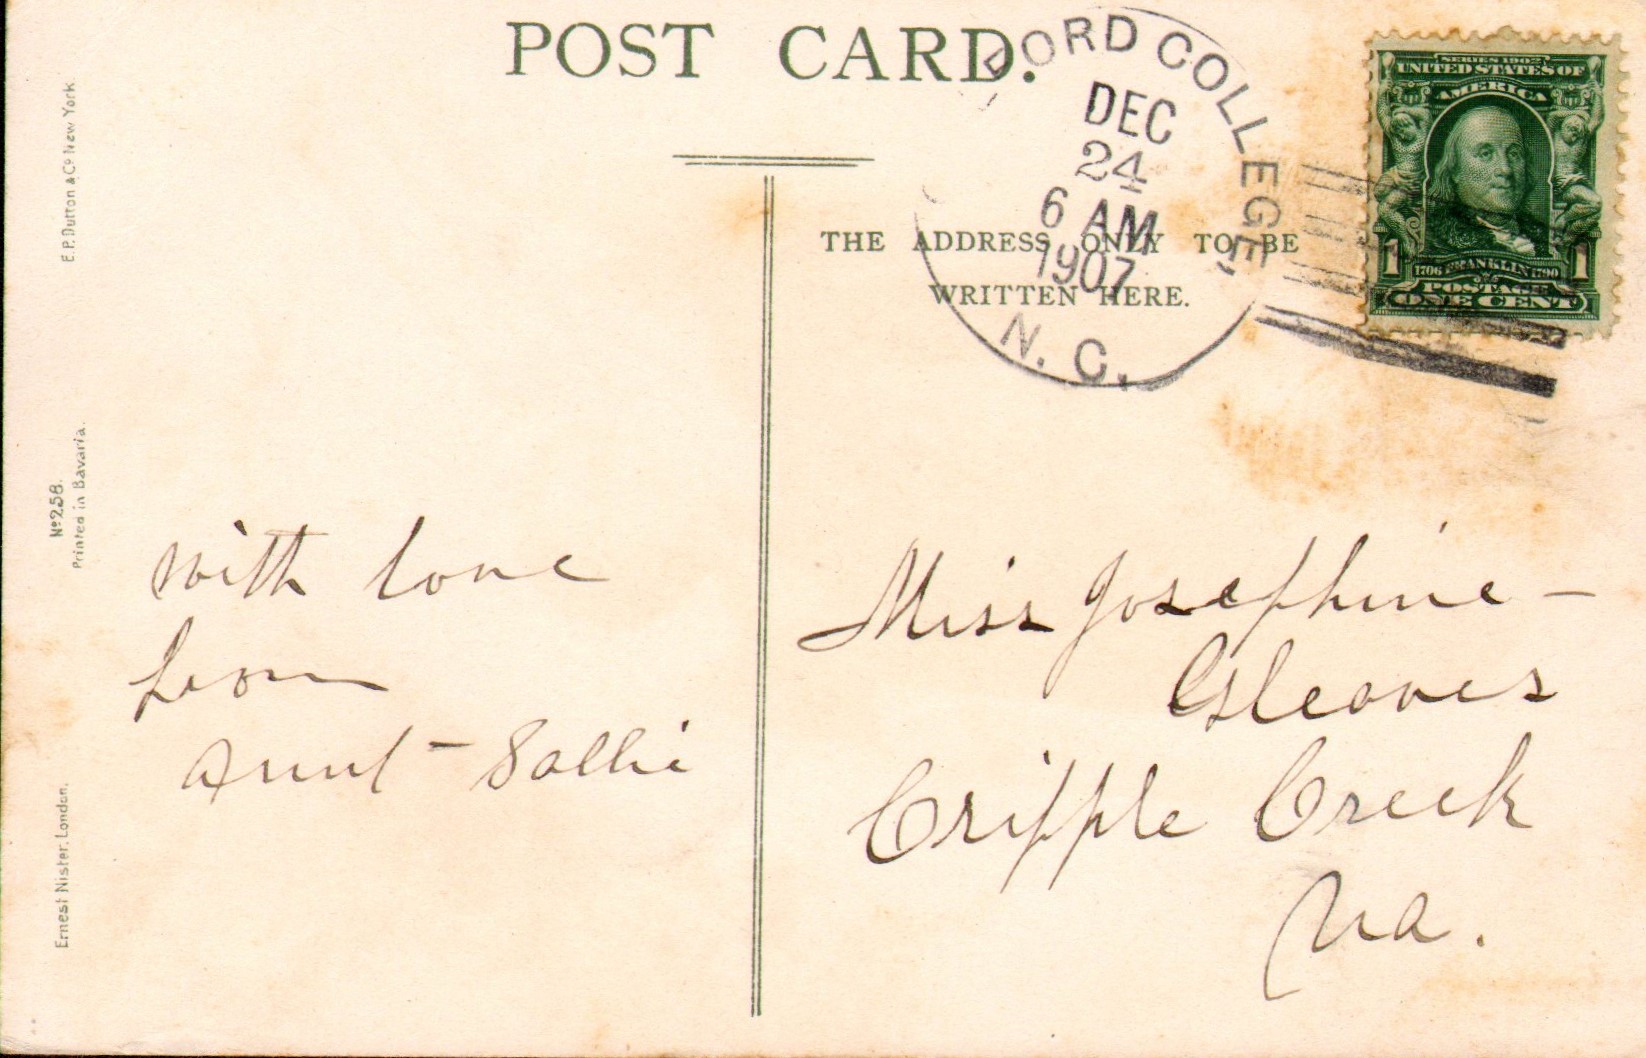 POST CARD.
FORD COLLEGE,
DEC
24
6 AM
1907
N. C.
SERIES 1902
UNITED STATES OF
AMERICA
1 1
1706 FRANKLIN 1790
POSTAGE
ONE CENT
THE ADDRESS ONLY TO BE
WRITTEN HERE.
E. P. Dutton & Co New York
No 258.
Printed in Bavaria.
Ernest Nister, London.
with love
from
Aunt - Sallie
Miss Josephine -
Gleaves
Cripple Creek
Va.